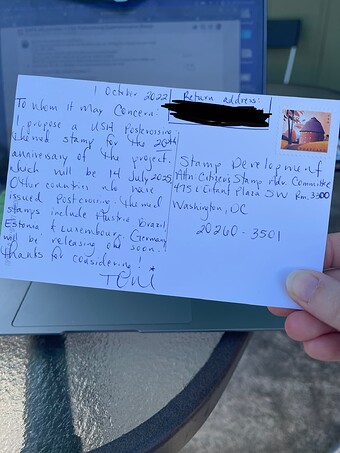 1 October 2022
To Whom It May Concern:
I propose a USA Postcrossing
themed stamp for the 20th
anniversary of the project,
which will be 14 July 2025.
Other countries who have
issued Postcrossing-themed
stamps include Austria, Brazil
Estonia & Luxembourg. Germany
will be releasing one soon.
Thanks for considering!
Return address:
Stamp Development
Attn: Citizens' Stamp Adv. Committee
475 L'Enfant Plaza SW Rm. 3300
Washington, DC
20260-3501